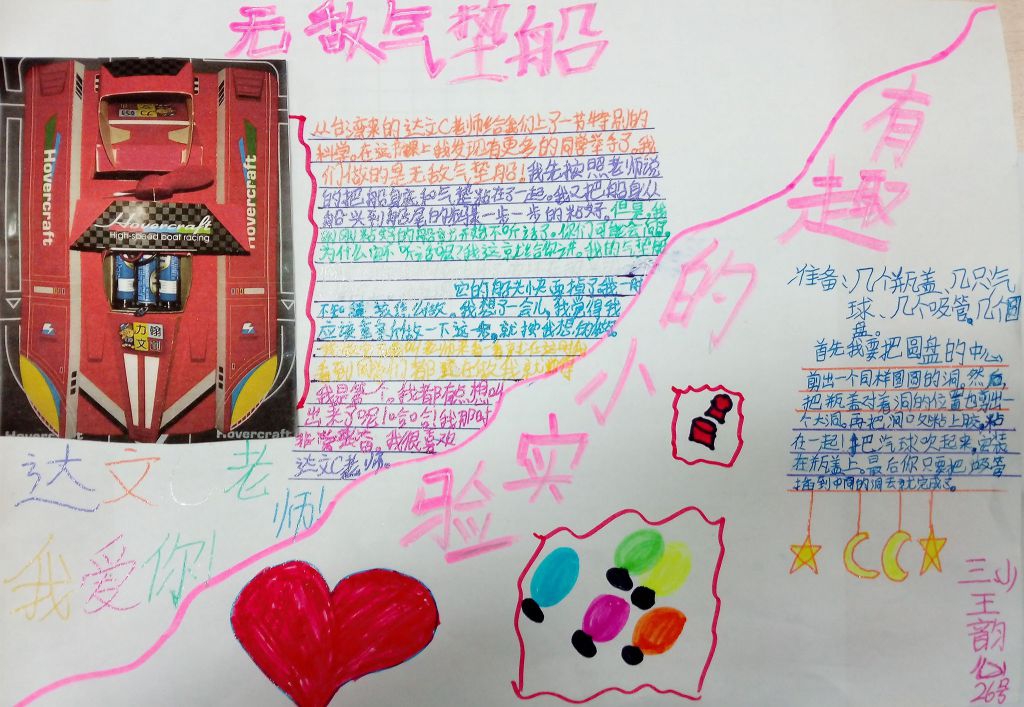 无敌气垫船
从台湾来的达文C老师给我们上了一节特别的
科学。在这节课上我发现有更多的同学举手了。我
们做的是无敌气垫船。我先按照老师说
的把船身底和气垫粘在了一起。我又把船身从
船头到船尾的一步一步的粘好。但是,我
刚刚粘好的船就不听话了。你们可能会问
为什么它不听话呢?我这就给你讲。我的气垫船
它的船头快要掉了我一时
不知该怎么做。我想了一会儿,我觉得我
应该重新做一下这一步。就按我想的做。
我是第一个。我都有点想叫
出来了呢!哈哈!我那时
我很喜欢
达文C老师。
Hovercraft
Hovercraft
Hovercraft
High-speed boat racing
Hovercraft
达文C老师!
我爱你!
有趣的小实验
准备:几个瓶盖、几只气
球、几个吸管,几个圆
盘。
首先我要把圆盘的中心
剪出一个同样圆圆的洞。然后,
把瓶盖对着洞的位置也剪出一
个大洞。再把洞口粘上胶。粘
在一起!把汽球吹起来,安装
在瓶盖上。最后你只要把吸管
插到中间的洞去就完成了。
三(1)
王
韵
心
26号